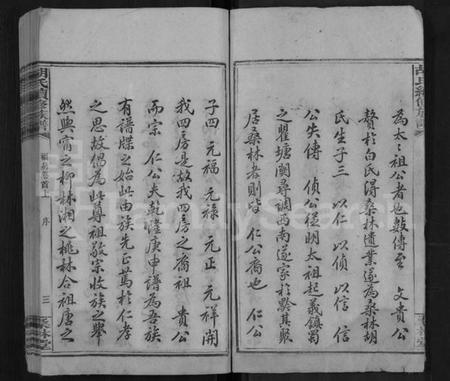 為太太祖公者也數傳至 文貴公
贅於白氏得桑林遺業遂為桑林胡
氏生子三 以仁 以偵 以信 信
公失傳 偵公從明太祖起義鎮蜀
之瞿塘關尋調西南遂家於黔其聚
居桑林者則皆 仁公裔也 仁公
子四 元福 元祿 元正 元祥開
我四房是故我四房之裔祖 貴公
而宗 仁公夫乾隆庚申譜為吾族
有譜牒之始此由族先正篤於仁孝
之思故倡為此尊祖敬宗收族之舉
然興甯之柳林湘之桃林合祖唐之
胡氏續修族譜
卷首上 序
三